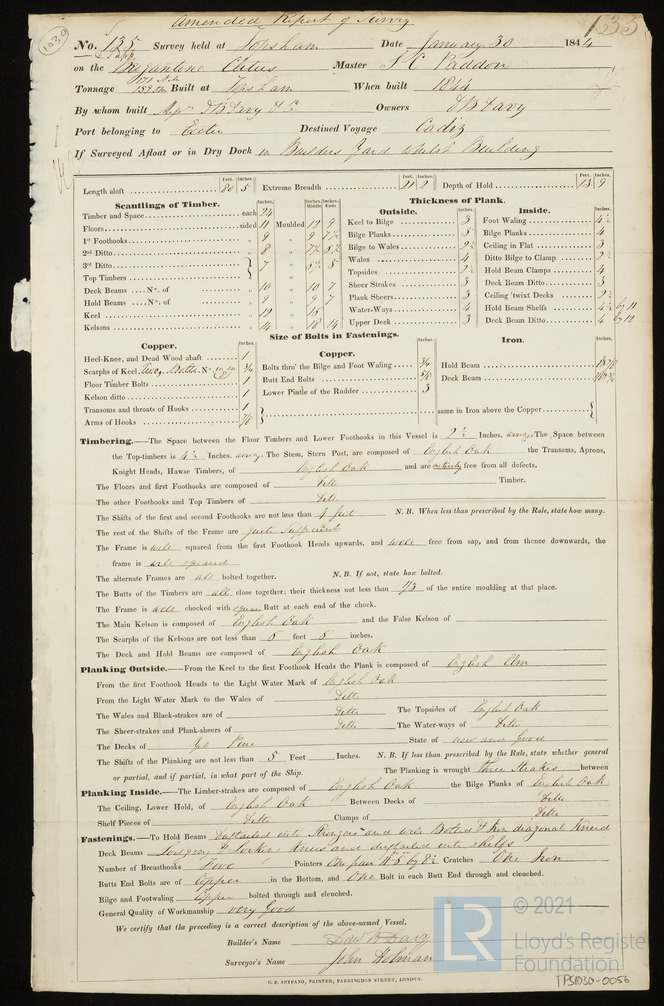 Amended Report of Survey
1030
135
No. 135 Survey held at Topsham Date January 30 1844
on the Brigantine Clitus Master J C Paddon
Tonnage Built at Topsham When built 1844
By whom built Messrs D B Davy & Co Owners D B Davy
Port belonging to Exeter Destined Voyage Cadiz
If Surveyed Afloat or in Dry Dock in Builders Yard whilst Building
Length aloft 80 5 Extreme Breadth 21 2 Depth of Hold 13 9
Scantlings of Timber.
Timber and Space each 24
Floors sided 11 Moulded 12 9
1st Foothooks 9 9 7½
2nd Ditto 8
3rd Ditto 7
Top Timbers
Deck Beams No. of 10 10 7
Hold Beams No. of 9 9 7
Keel 12 16
Kelsons 14 18 14
Thickness of Plank.
Outside.
Keel to Bilge 3
Bilge Planks 3
Bilge to Wales
Wales 4
Topsides
Sheer Strakes 3
Plank Sheers 3
Water-Ways 4
Upper Deck 3
Inside.
Foot Waling
Bilge Planks 4
Ceiling in Flat 3
Ditto Bilge to Clamp
Hold Beam Clamps 4
Deck Beam Ditto 3
Ceiling 'twixt Decks
Hold Beam Shelfs by 11
Deck Beam Ditto 4 by 12
Size of Bolts in Fastenings.
Copper.
Heel-Knee, and Dead Wood abaft 1
Scarphs of Keel, Two, Bolts. No.
Floor Timber Bolts 1
Kelson ditto 1
Transoms and throats of Hooks 1
Arms of Hooks
Copper.
Bolts thro' the Bilge and Foot Waling
Butt End Bolts
Lower Pintle of the Rudder 3
Iron.
Hold Beam
Deck Beam
same in Iron above the Copper
Timbering.—The Space between the Floor Timbers and Lower Foothooks in this Vessel is 2½ Inches. average The Space between
the Top-timbers is 4½ Inches. average The Stem, Stern Post, are composed of English Oak the Transoms, Aprons,
Knight Heads, Hawse Timbers, of English Oak and are entirely free from all defects.
The Floors and first Foothooks are composed of Ditto Timber.
The other Foothooks and Top Timbers of Ditto
The Shifts of the first and second Foothooks are not less than 4 feet N. B. When less than prescribed by the Rule, state how many.
The rest of the Shifts of the Frame are quite sufficient
The Frame is well squared from the first Foothook Heads upwards, and well free from sap, and from thence downwards, the
frame is well squared
The alternate Frames are all bolted together. N. B. If not, state how bolted.
The Butts of the Timbers are all close together; their thickness not less than 1/3 of the entire moulding at that place.
The Frame is well chocked with square Butt at each end of the chock.
The Main Kelson is composed of English Oak and the False Kelson of
The Scarphs of the Kelsons are not less than 5 feet 5 inches.
The Deck and Hold Beams are composed of English Oak
Planking Outside.—From the Keel to the first Foothook Heads the Plank is composed of English Elm
From the first Foothook Heads to the Light Water Mark of English Oak
From the Light Water Mark to the Wales of Ditto
The Wales and Black-strakes are of Ditto The Topsides of English Oak
The Sheer-strakes and Plank-sheers of Ditto The Water-ways of Ditto
The Decks of Yel Pine State of new and good
The Shifts of the Planking are not less than 5 Feet Inches. N. B. If less than prescribed by the Rule, state whether general
or partial, and if partial, in what part of the Ship. The Planking is wrought three strakes between
Planking Inside.—The Limber-strakes are composed of English Oak the Bilge Planks of English Oak
The Ceiling, Lower Hold, of English Oak Between Decks of Ditto
Shelf Pieces of Ditto Clamps of Ditto
Fastenings.—To Hold Beams dovetailed into Stringers and well Bolted & Iron diagonal Knees
Deck Beams Lodging Knees and dovetailed into shelfs
Number of Breasthooks Five Pointers One pair Crutches One Iron
Butts End Bolts are of Copper in the Bottom, and One Bolt in each Butt End through and clenched.
Bilge and Footwaling Copper bolted through and clenched.
General Quality of Workmanship very good
We certify that the preceding is a correct description of the above-named Vessel,
Builder's Name Danl B Davy
Surveyor's Name John Holman
C. F. SEYFANG, PRINTER, FARRINGDON STREET, LONDON.
LR © 2021
Lloyd's Register
Foundation
TPS1030-0056